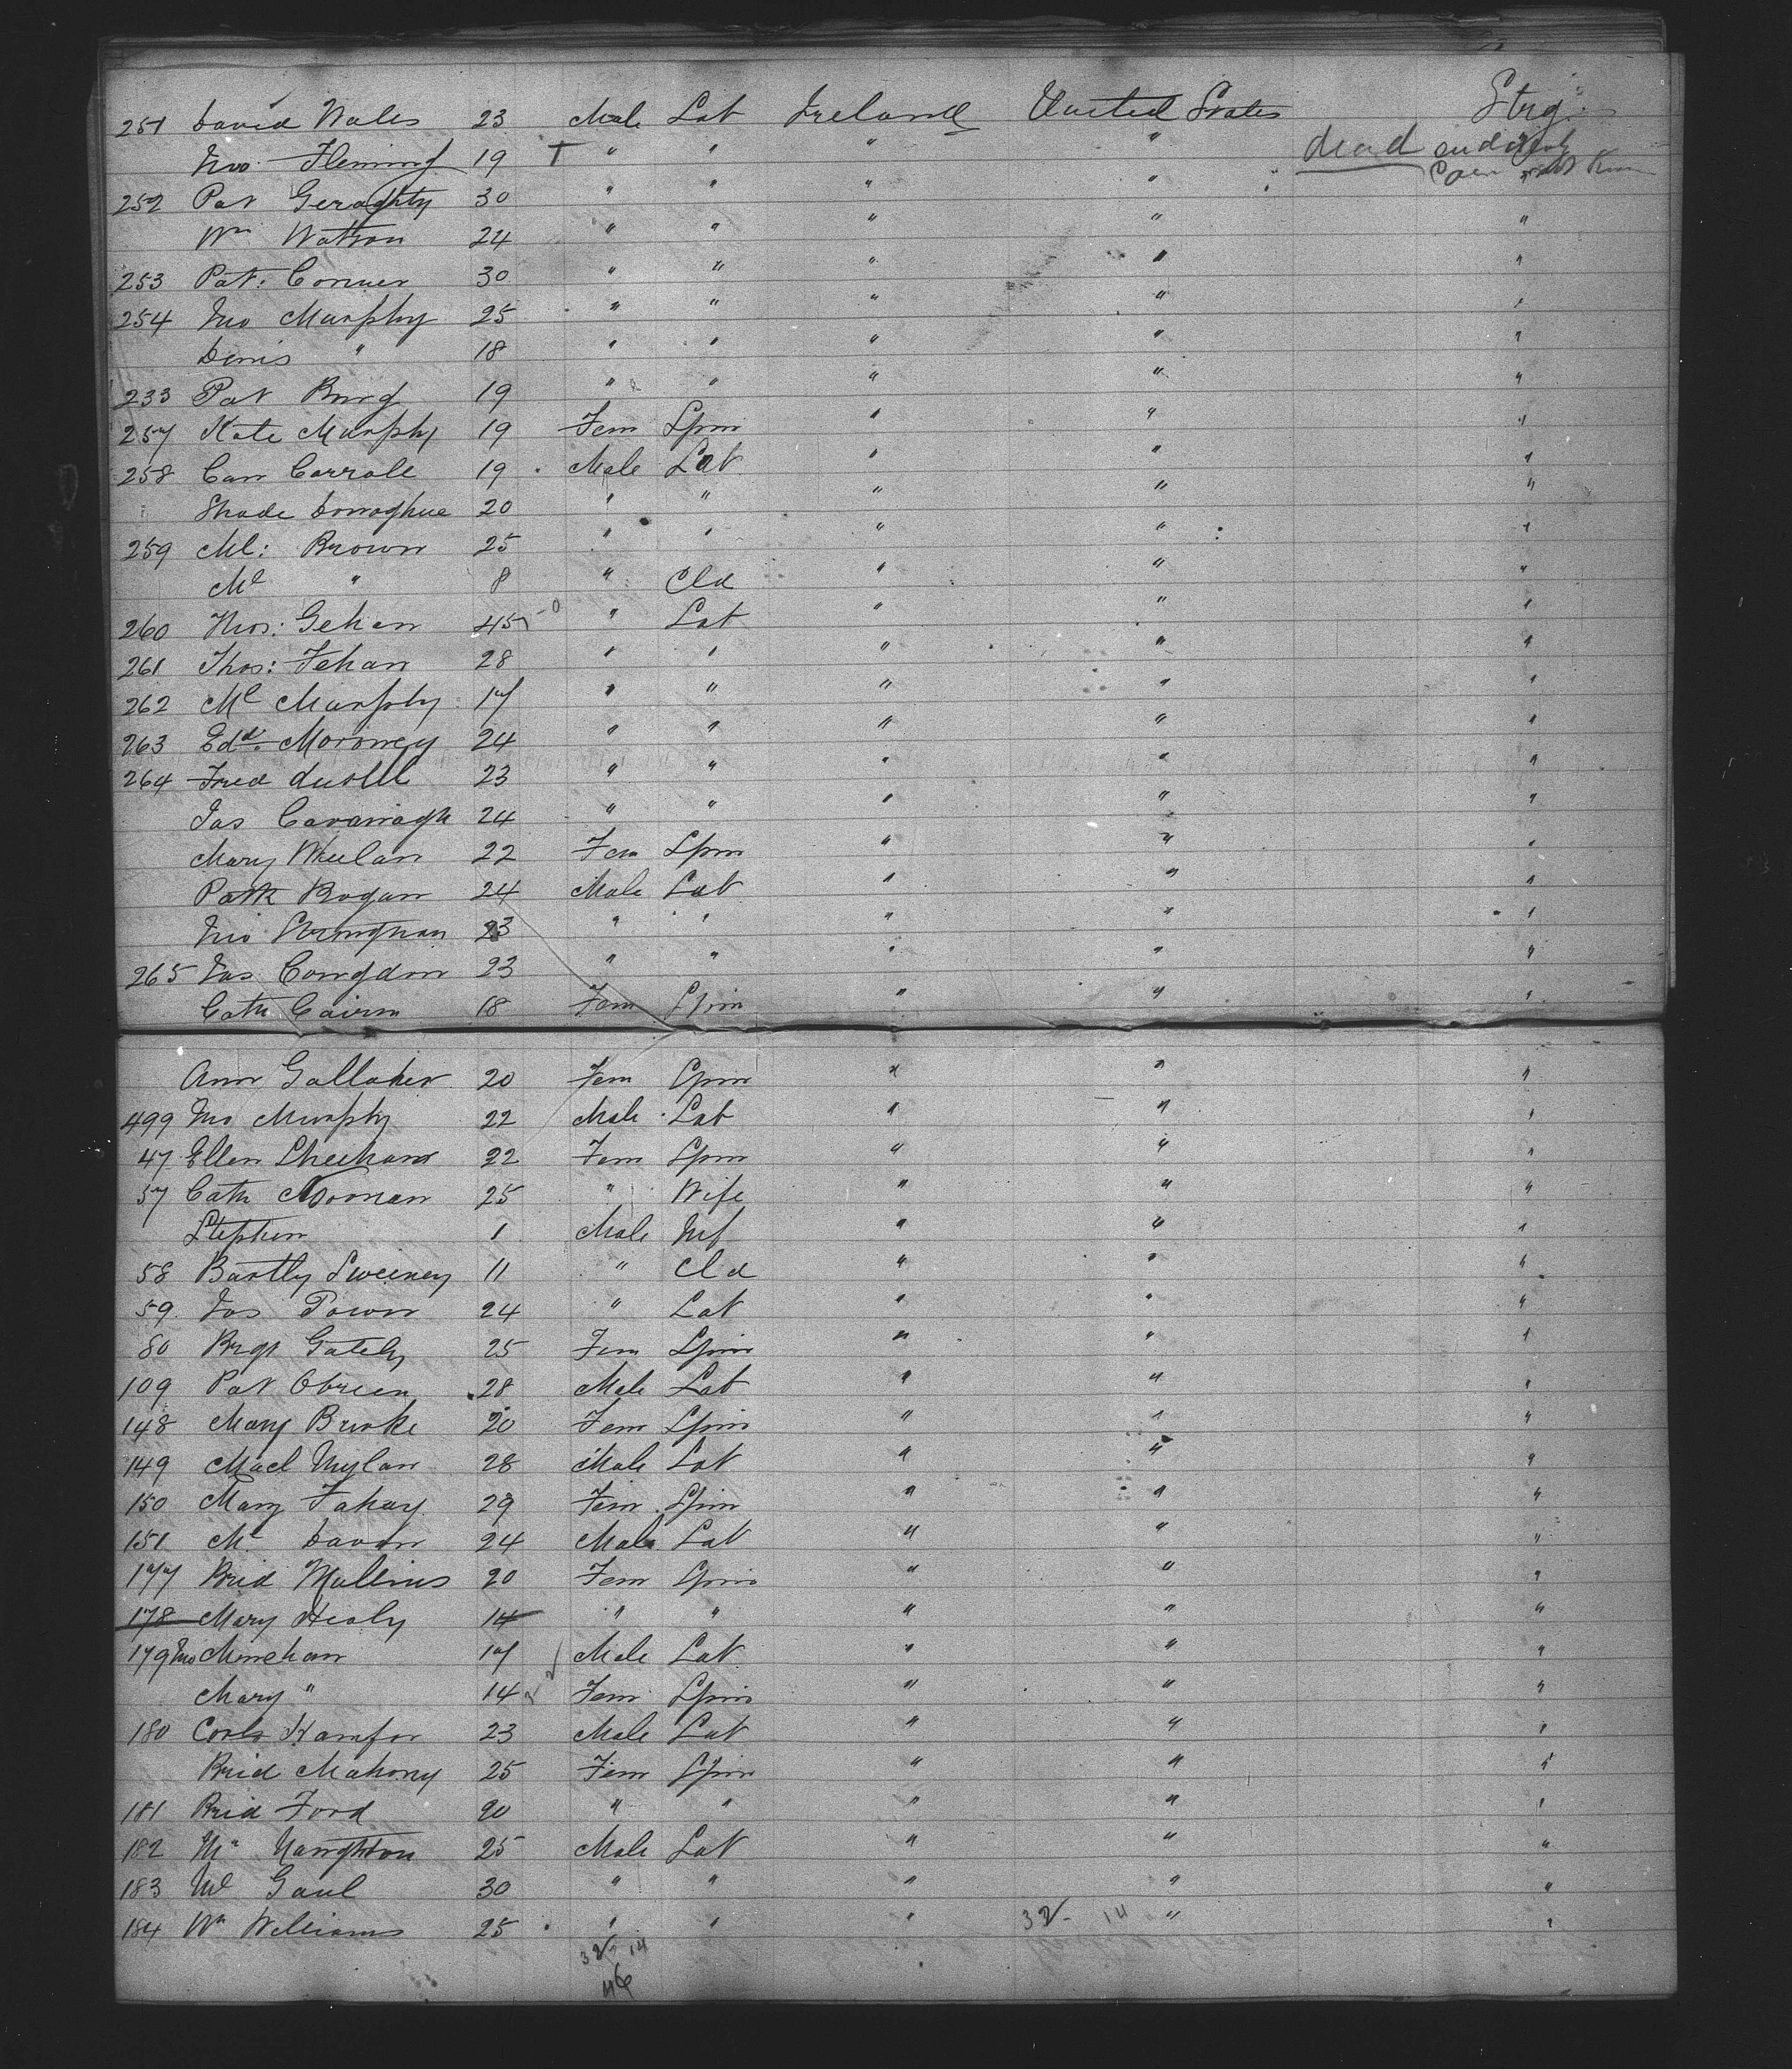 Strg
251 David Wales 23 Male Lab Ireland United States
Jno Fleming 19 T " " " " dead suddenly
252 Pat Geraghty 30 " " " "
Wm Watson 24 " " " " "
253 Pat: Conner 30 " " " " "
254 Jno Murphy 25 " " " " "
Denis " 18 " " " " "
233 Pat 19 " " " " "
257 Kate Murphy 19 Fem Spin " " "
258 Con Carroll 19 Male Lab " " "
Shade Donoghue 20 " " " " "
259 Ml: Brown 25 " " " " "
Ml " 8 " Cld " " "
260 Thos: Gehan 45 " Lab " " "
261 Thos: Fehan 28 " " " " "
262 Ml Murphy 17 " " " " "
263 Edd. Moroney 24 " " " " "
264 Fred 23 " " " " "
Jas Cavanagh 24 " " " " "
Mary Wheelan 22 Fem Spin " " "
Patk Bogan 24 Male Lab " " "
Jno 23 " " " " "
265 Jas Congdon 23 " " " " "
Cath Cairn 18 Fem Spin " " "
Ann Gallaher 20 Fem Spin " " "
499 Jno Murphy 22 Male Lab " " "
47 Ellen Sheehan 22 Fem Spin " " "
57 Cath Noonan 25 " Wife " " "
Stephen 1 Male Inf " " "
58 Bartly Sweeney 11 " Cld " " "
59 Jas Power 24 " Lab " " "
80 Brgt Gately 25 Fem Spin " " "
109 Pat Obrien 28 Male Lab " " "
148 Mary Burke 20 Fem Spin " " "
149 Mael Nylan 28 Male Lab " " "
150 Mary Fahay 29 Fem Spin " " "
151 Ml Davan 24 Male Lab " " "
177 Brid Mullins 20 Fem Spin " " "
178 Mary Healy 14 " " " " "
179 Jno Meehan 17 Male Lab " " "
Mary " 14 Fem Spin " " "
180 23 Male Lab " " "
Brid Mahony 25 Fem Spin " " "
181 Brid Ford 20 " " " " "
182 Ml Naughton 25 Male Lab " " "
183 Ml Gaul 30 " " " " "
184 Wm Williams 25 " " " 32 - 14 " "
32 - 14
46